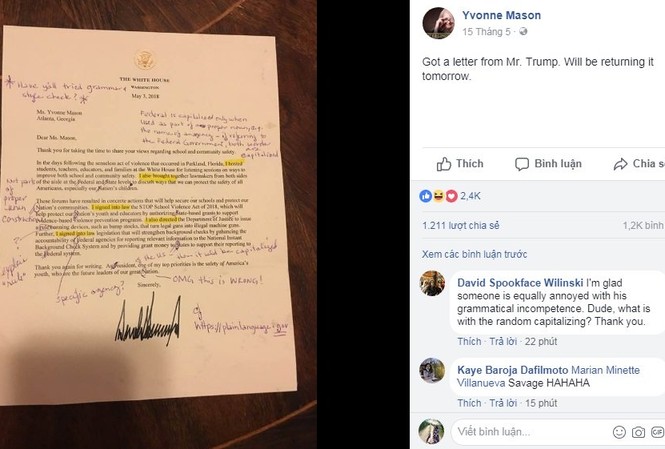 THE WHITE HOUSE
WASHINGTON
May 3, 2018
* Have y'all tried grammar &
style check? *
Federal is capitalized only when
used as part of a proper noun, e.g.
Ms. Yvonne Mason
Atlanta, Georgia
Dear Ms. Mason,
Thank you for taking the time to share your views regarding school and community safety.
In the days following the senseless act of violence that occurred in Parkland, Florida, I hosted
students, teachers, educators, and families at the White House for listening sessions on ways to
improve both school and community safety. I also brought together lawmakers from both sides
of the aisle at the Federal and State levels to discuss ways that we can protect the safety of all
Americans, especially our Nation's children.
These forums have resulted in concrete actions that will help secure our schools and protect our
Nation's communities. I signed into law the STOP School Violence Act of 2018, which will
help protect our Nation's youth and educators by authorizing State-based grants to support
evidence-based violence prevention programs. I also directed the Department of Justice to issue
Further, I signed into law legislation that will strengthen background checks by enhancing the
accountability of Federal agencies for reporting relevant information to the National Instant
Background Check System and by providing grant money to States to support their reporting to
the Federal system.
Thank you again for writing. As President, one of my top priorities is the safety of America's
youth, who are the future leaders of our great Nation.
Sincerely,
specific agency?
OMG this is WRONG!
Yvonne Mason
15 Tháng 5 ·
Got a letter from Mr. Trump. Will be returning it
tomorrow.
Thích
Bình luận
Chia sẻ
2,4K
1.211 lượt chia sẻ
1,2K bình
Xem các bình luận trước
David Spookface Wilinski I'm glad
someone is equally annoyed with his
grammatical incompetence. Dude, what is
with the random capitalizing? Thank you.
Thích · Trả lời · 22 phút
Kaye Baroja Dafilmoto Marian Minette
Villanueva Savage HAHAHA
Thích · Trả lời · 15 phút
Viết bình luận...
GIF